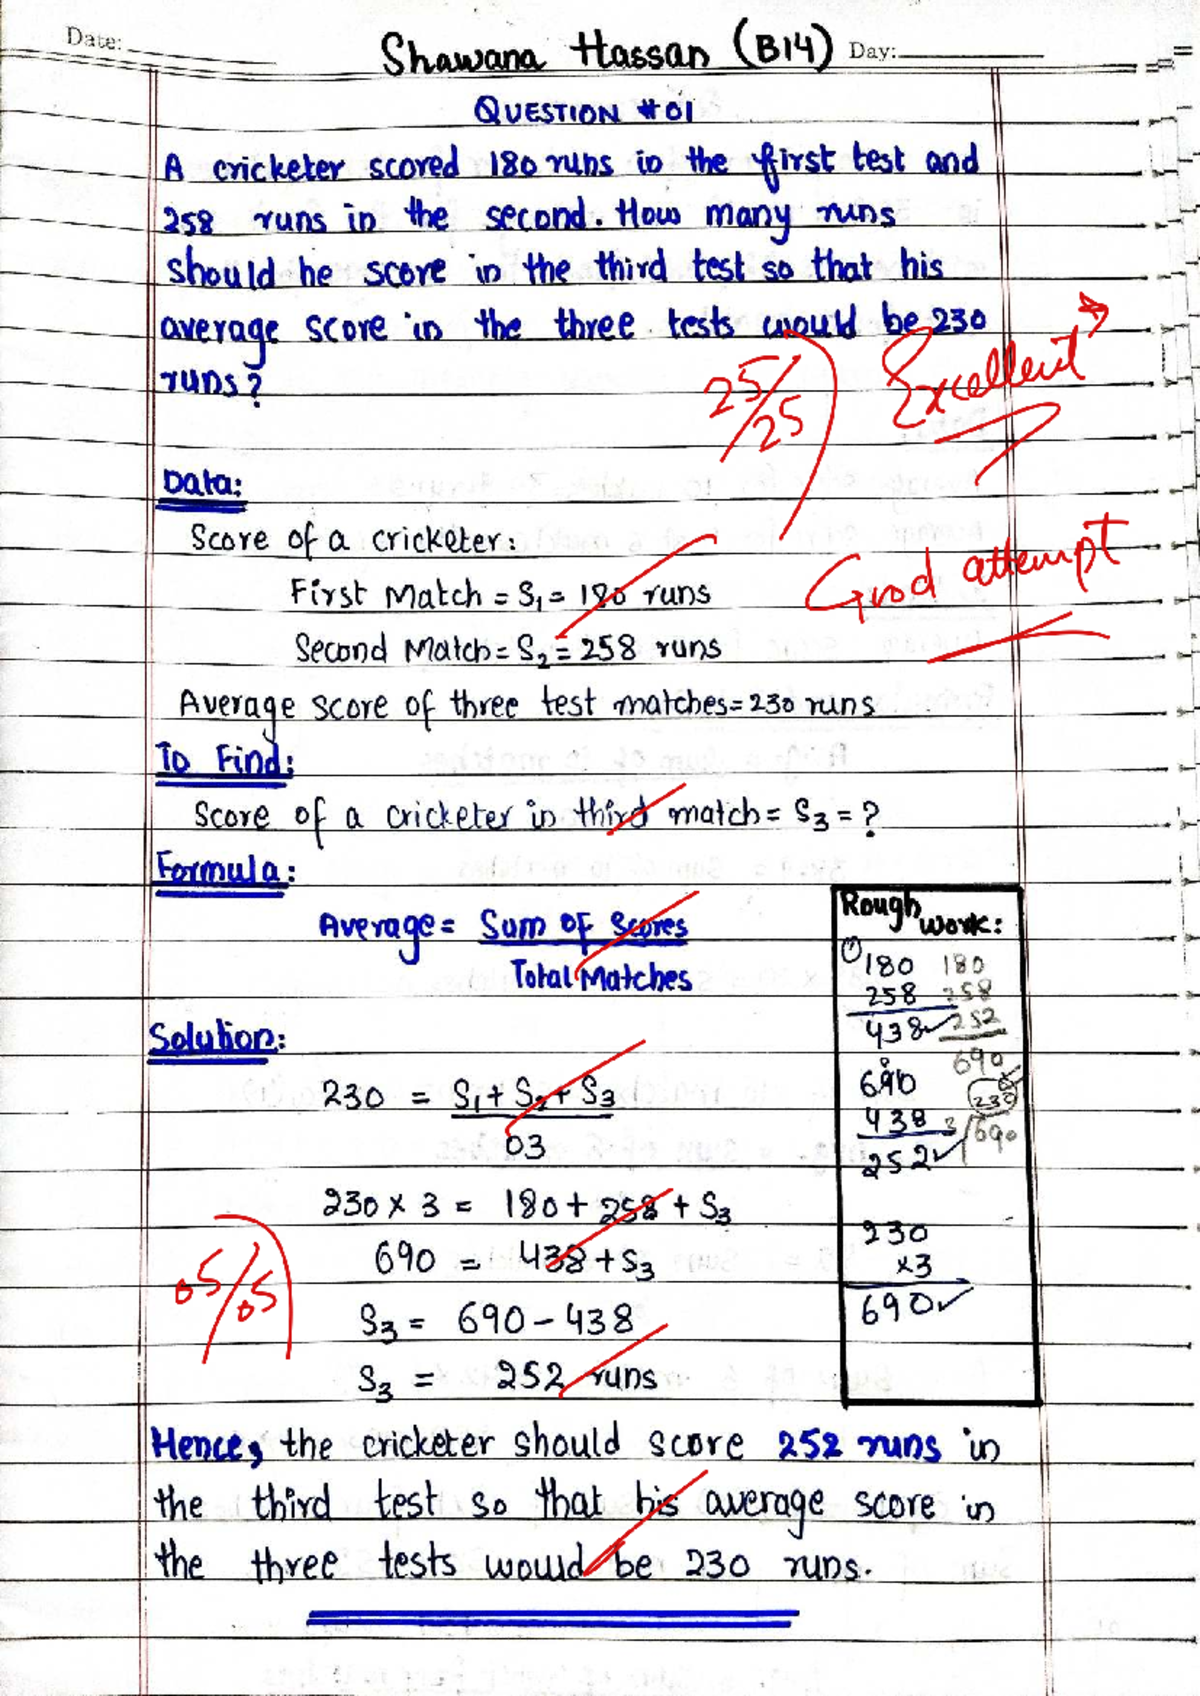 Date:
Shawana Hassan (B14)
Day:
QUESTION #01
A cricketer scored 180 runs in the first test and
258 runs in the second. How many runs
should he score in the third test so that his
average score in the three tests would be 230
runs?
25/25
Excellent
Data:
Score of a cricketer:
First Match = S₁ = 180 runs
Good attempt
Second Match = S₂ = 258 runs
Average score of three test matches = 230 runs
To Find:
Score of a cricketer in third match = S₃ = ?
Formula:
Average = Sum of Scores
Total Matches
Rough Work:
180 180
258 258
438 252
690
690
230
438 3 690
252
230
×3
690
Solution:
230 = S₁ + S₂ + S₃
03
230 × 3 = 180 + 258 + S₃
690 = 438 + S₃
05/05
S₃ = 690 - 438
S₃ = 252 runs
Hence, the cricketer should score 252 runs in
the third test so that his average score in
the three tests would be 230 runs.